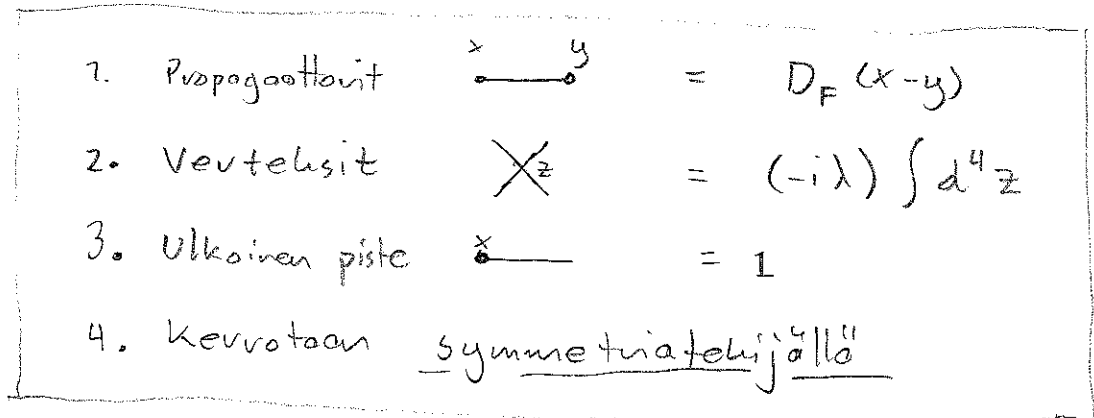 1. Propagaattorit x y = D_F (x-y)
2. Verteksit z = (-iλ) ∫ d⁴z
3. Ulkoinen piste x = 1
4. Kerrotaan symmetriatekijällä